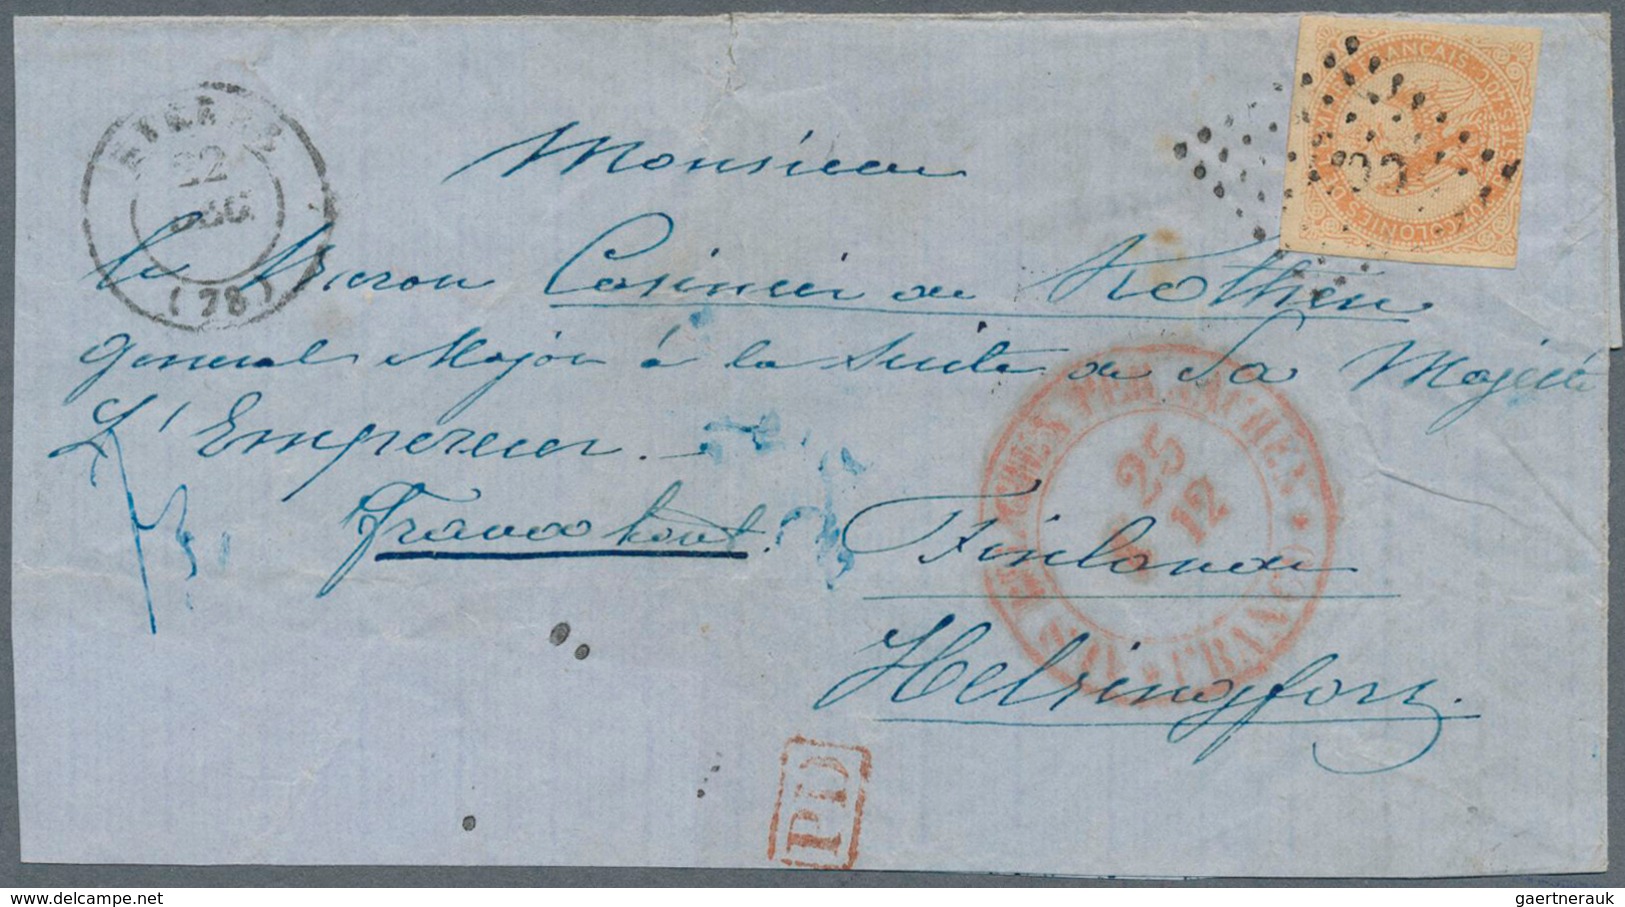 22
(78)
COLONIES
FRANÇAIS
Monsieur
le Baron Casimir de Kothen
General Major à la Suite de Sa Majesté
L'Empereur.
25
12
FRANCO
Franco tout.
Finlande
Helsingfors.
PD
gaertnerauk